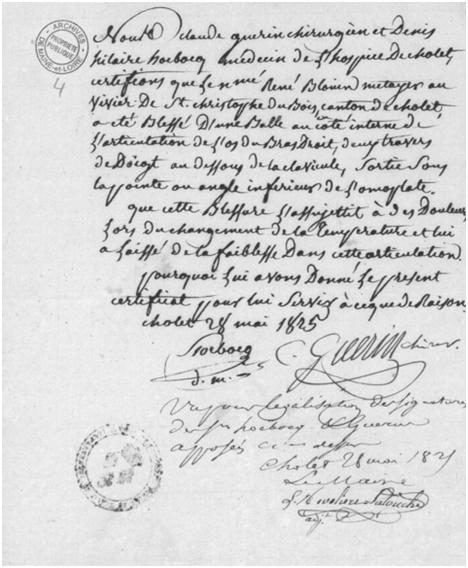 ARCHIVES
DE MAINE-et-LOIRE
PROPRIÉTÉ
PUBLIQUE
4
Nous Claude guerin chirurgien et Denis
hilaire hoebocq médecin de l'hospice De cholet,
certifions que le n.mé René Blouin metayer au
vivier De St. christophe du Bois, canton de cholet,
a été Blessé D'une Balle au côté interne de
l'articulation de l'os du Bras Droit, deux travers
de Doigt au dessous de la clavicule, sortie sous
la pointe ou angle inférieur de l'omoplate.
que cette Blessure l'assujettit à des Douleurs
lors du changement de la température et lui
a laissé de la faiblesse Dans cette articulation.
pourquoi lui avons Donné le present
certificat pour lui servir à ce que de Raison.
cholet 28 mai 1825
hoebocq C. Guerin chirur.
d. m.
Vu pour legalisation des signatures
des Srs hoebocq & Guerin
apposés ci dessus
Cholet 28 mai 1825
Le Maire
adjt